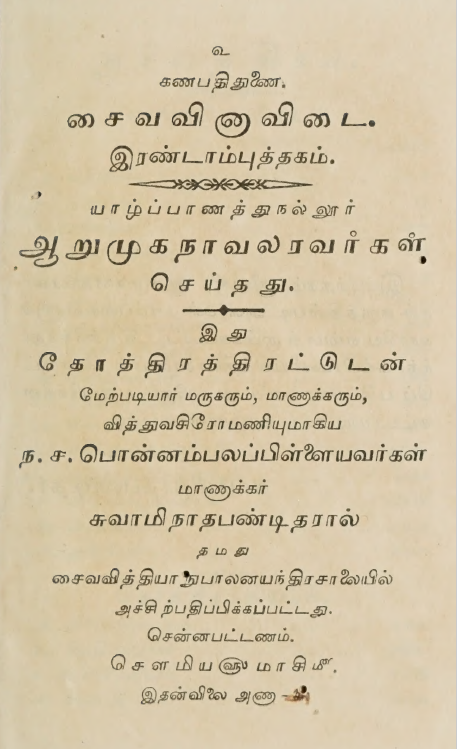 உ
கணபதிதுணை.
சைவவினாவிடை.
இரண்டாம்புத்தகம்.
யாழ்ப்பாணத்துநல்லூர்
ஆறுமுகநாவலரவர்கள்
செய்தது.
இது
தோத்திரத்திரட்டுடன்
மேற்படியார் மருகரும், மாணாக்கரும்,
வித்துவசிரோமணியுமாகிய
ந. ச. பொன்னம்பலப்பிள்ளையவர்கள்
மாணாக்கர்
சுவாமிநாதபண்டிதரால்
தமது
சைவவித்தியாநுபாலனயந்திரசாலையில்
அச்சிற்பதிப்பிக்கப்பட்டது.
சென்னபட்டணம்.
சௌமிய௵ மாசி௴.
இதன்விலை அணா